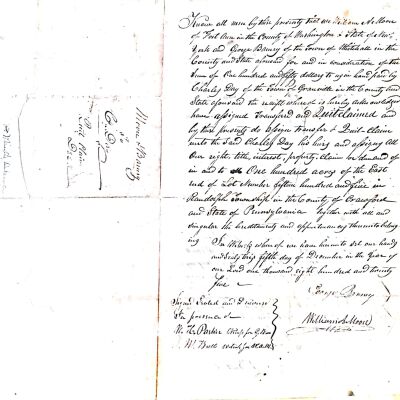 Know all men by these presents that we William A. Moore
of Fort Ann in the County of Washington & State of New
York and George Barney of the Town of Whitehall in the
County and State aforesaid for and in consideration of the
Sum of One hundred and fifty dollars to us in hand paid by
Charles Day of the Town of Granville in the County and
State aforesaid the receipt whereof is hereby acknowledged
have assigned Transfered and Quitclaimed and
by these presents do assign transfer & Quit-Claim
unto the Said Charles Day his heirs and assigns All
Our right, title, interest, property, claim & demand of
in and to One hundred acres of the East
end of Lot Number fifteen hundred and five in
Randolph Township in the County of Crawford
and State of Pennsylvania together with all and
singular the hereditaments and appurtenances thereunto belong
ing In Witness whereof we have hereunto set our hands
and Seals this fifth day of December in the year of
our Lord one thousand eight hundred and twenty
five
George Barney
William A. Moore
Signed Sealed and Delivered
In presence of
Moore & Barney
to
C. Day
Quit Claim